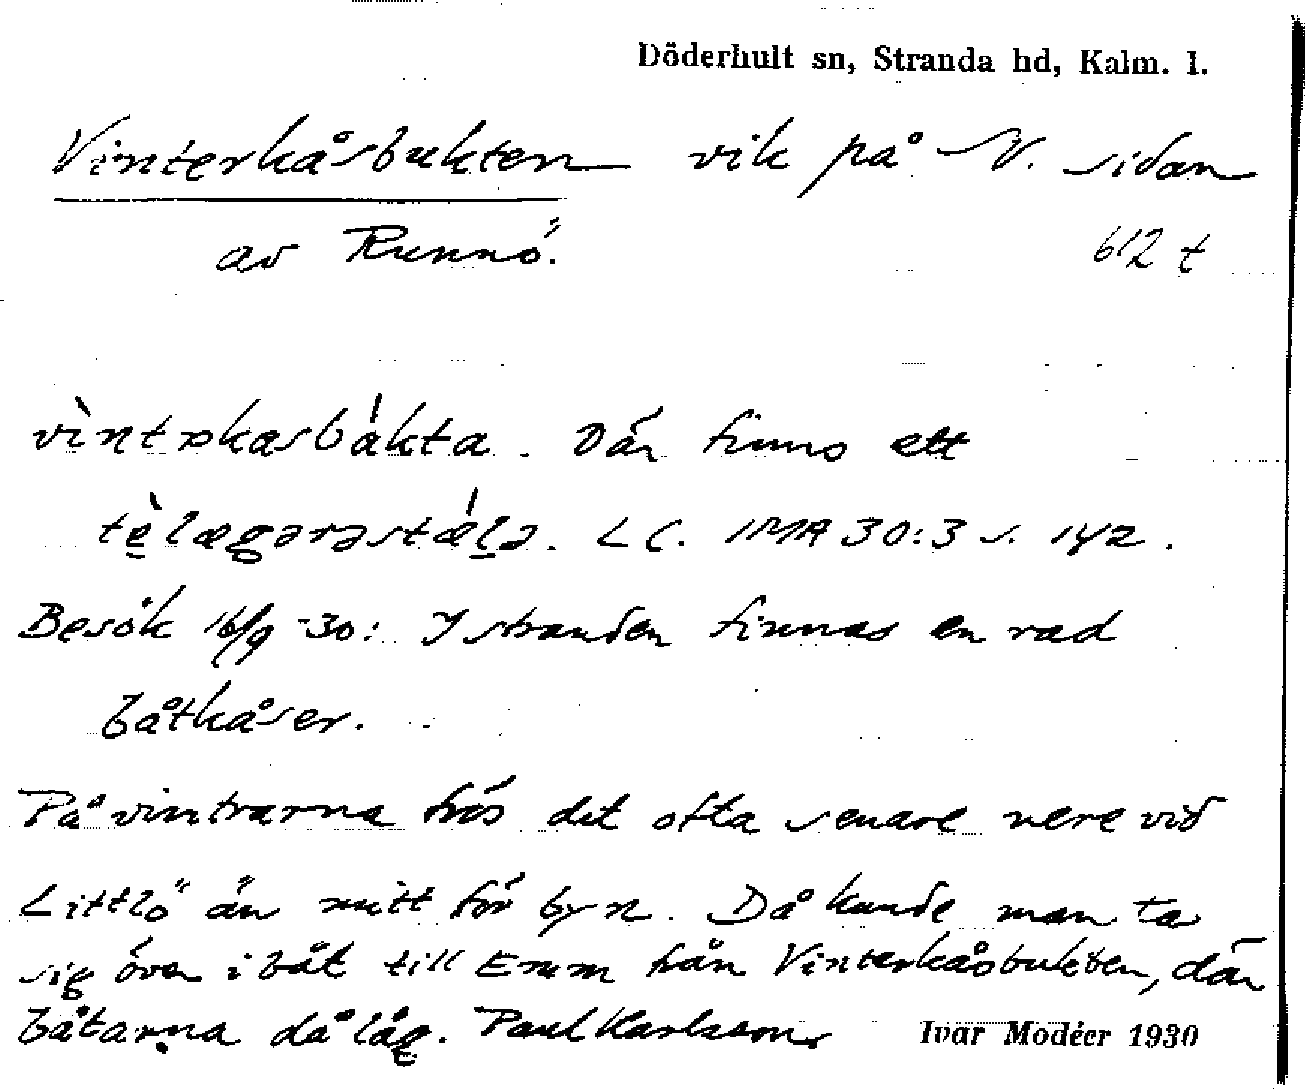 Döderhult sn, Stranda hd, Kalm. l.
Vinterkåsbukten vik på N. sidan
av Runnö.
612 t
Där finns ett
LC. IMA 30:3 s. 142.
Besök 16/9 -30: I stranden finnas en rad
båtkåser.
På vintrarna frös det ofta senare nere vid
Littlö än mitt för byn. Då kunde man ta
sig över i båt till Emm från Vinterkåsbukten, där
båtarna då låg. Paul Karlsson.
Ivar Modéer 1930